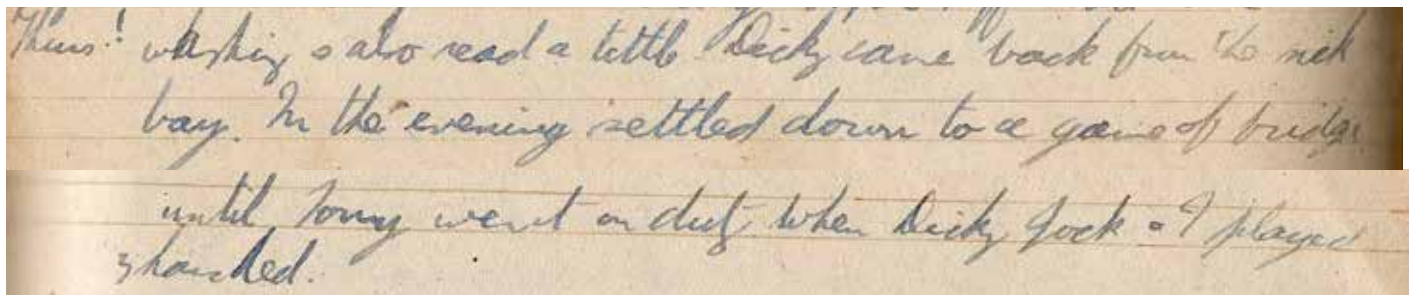 Thurs: washing & also read a little Dicky came back from the sick
bay. In the evening settled down to a game of bridge
until Tony went on duty when Dicky Jock & I played
3 handed.